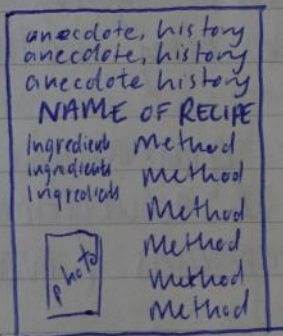 anecdote, history
anecdote, history
anecdote history
NAME OF RECIPE
Ingredients Method
ingredients Method
Ingredients Method
Method
photo Method
Method